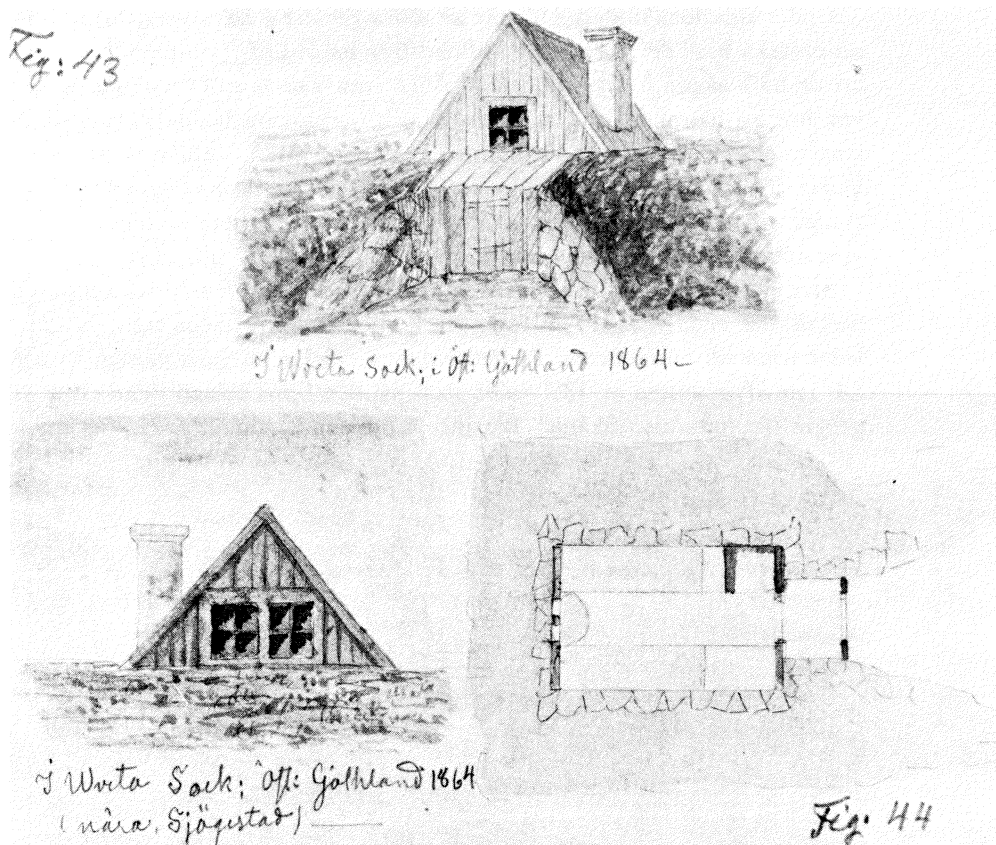 Fig: 43
I Wreta Sock; i Öst: Göthland 1864
I Wreta Sock; Öst: Göthland 1864
(nära, Sjögestad)
Fig: 44